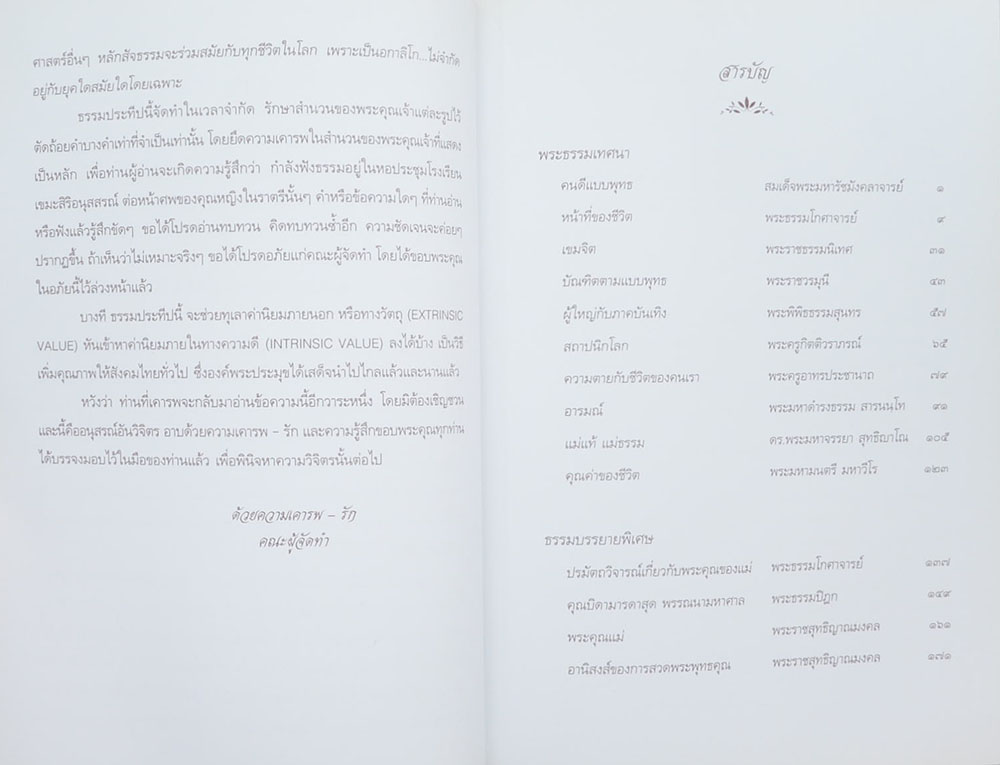 ศาสตร์อื่นๆ หลักสัจธรรมจะร่วมสมัยกับทุกชีวิตในโลก เพราะเป็นอกาลิโก...ไม่จำกัด
อยู่กับยุคใดสมัยใดโดยเฉพาะ
ธรรมประทีปนี้จัดทำในเวลาจำกัด รักษาสำนวนของพระคุณเจ้าแต่ละรูปไว้
ตัดถ้อยคำบางคำเท่าที่จำเป็นเท่านั้น โดยยึดความเคารพในสำนวนของพระคุณเจ้าที่แสดง
เป็นหลัก เพื่อท่านผู้อ่านจะเกิดความรู้สึกว่า กำลังฟังธรรมอยู่ในหอประชุมโรงเรียน
เขมะสิริอนุสสรณ์ ต่อหน้าศพของคุณหญิงในราตรีนั้นๆ คำหรือข้อความใดๆ ที่ท่านอ่าน
หรือฟังแล้วรู้สึกขัดๆ ขอได้โปรดอ่านทบทวน คิดทบทวนซ้ำอีก ความชัดเจนจะค่อยๆ
ปรากฏขึ้น ถ้าเห็นว่าไม่เหมาะจริงๆ ขอได้โปรดอภัยแก่คณะผู้จัดทำ โดยได้ขอบพระคุณ
ในอภัยนี้ไว้ล่วงหน้าแล้ว
บางที ธรรมประทีปนี้ จะช่วยทุเลาค่านิยมภายนอก หรือทางวัตถุ (EXTRINSIC
VALUE) หันเข้าหาค่านิยมภายในทางความดี (INTRINSIC VALUE) ลงได้บ้าง เป็นวิธี
เพิ่มคุณภาพให้สังคมไทยทั่วไป ซึ่งองค์พระประมุขได้เสด็จนำไปไกลแล้วและนานแล้ว
หวังว่า ท่านที่เคารพจะกลับมาอ่านข้อความนี้อีกวาระหนึ่ง โดยมิต้องเชิญชวน
และนี่คืออนุสรณ์อันวิจิตร อาบด้วยความเคารพ – รัก และความรู้สึกขอบพระคุณทุกท่าน
ได้บรรจงมอบไว้ในมือของท่านแล้ว เพื่อพินิจหาความวิจิตรนั้นต่อไป
ด้วยความเคารพ – รัก
คณะผู้จัดทำ
สารบัญ
พระธรรมเทศนา
คนดีแบบพุทธ สมเด็จพระมหารัชมังคลาจารย์ ๑
หน้าที่ของชีวิต พระธรรมโกศาจารย์ ๙
เขมจิต พระราชธรรมนิเทศ ๓๑
บัณฑิตตามแบบพุทธ พระราชวรมุนี ๔๓
ผู้ใหญ่กับภาคบันเทิง พระพิพิธธรรมสุนทร ๕๗
สถาปนิกโลก พระครูกิตติวราภรณ์ ๖๕
ความตายกับชีวิตของคนเรา พระครูอาทรประชานาถ ๗๙
อารมณ์ พระมหาดำรงธรรม สารนนฺโท ๙๑
แม่แท้ แม่ธรรม ดร.พระมหาจรรยา สุทธิญาโณ ๑๐๕
คุณค่าของชีวิต พระมหามนตรี มหาวีโร ๑๒๓
ธรรมบรรยายพิเศษ
ปรมัตถวิจารณ์เกี่ยวกับพระคุณของแม่ พระธรรมโกศาจารย์ ๑๓๗
คุณบิดามารดาสุด พรรณนามหาศาล พระธรรมปิฎก ๑๔๙
พระคุณแม่ พระราชสุทธิญาณมงคล ๑๖๑
อานิสงส์ของการสวดพระพุทธคุณ พระราชสุทธิญาณมงคล ๑๗๑